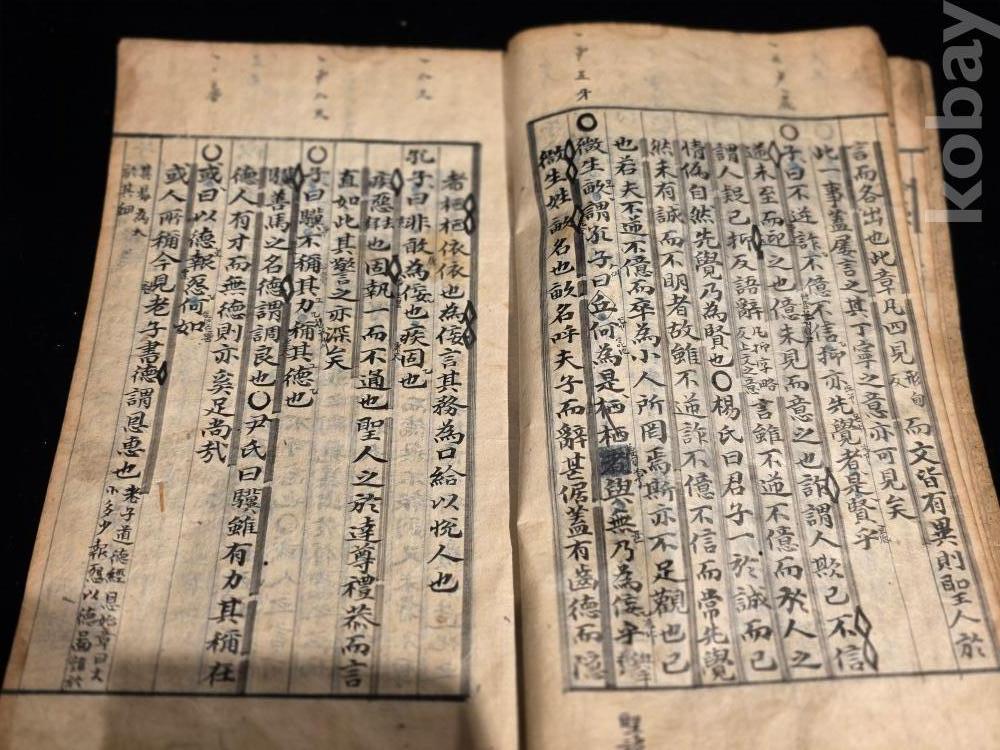 言而各出也此章凡四見而文皆有異則聖人於
此一事蓋屢言之其丁寧之意亦可見矣
子曰不逆詐不億不信抑亦先覺者是賢乎
逆未至而迎之也億未見而意之也詐謂人欺己不信
謂人疑己抑反語辭言雖不逆不億而於人之
情僞自然先覺乃爲賢也〇楊氏曰君子一於誠而已
然未有誠而不明者故雖不逆詐不億不信而常先覺
也若夫不逆不億而卒爲小人所罔焉斯亦不足觀也已
微生畝謂孔子曰丘何爲是栖栖者與無乃爲佞乎
微生姓畝名也畝名呼夫子而辭甚倨蓋有齒德而隱
者栖栖依依也爲佞言其務爲口給以悅人也
孔子曰非敢爲佞也疾固也
疾惡也固執一而不通也聖人之於達尊禮恭而言
直如此其警之亦深矣
子曰驥不稱其力稱其德也
驥善馬之名德謂調良也〇尹氏曰驥雖有力其稱在
德人有才而無德則亦奚足尚哉
或曰以德報怨何如
或人所稱今見老子書德謂恩惠也
kobay